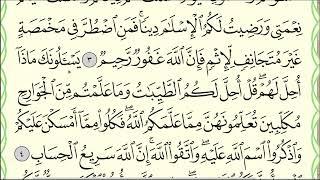 نِعْمَتِى وَرَضِيتُ لَكُمُ ٱلْإِسْلَٰمَ دِينًا ۚ فَمَنِ ٱضْطُرَّ فِى مَخْمَصَةٍ
غَيْرَ مُتَجَانِفٍ لِّإِثْمٍ ۙ فَإِنَّ ٱللَّهَ غَفُورٌ رَّحِيمٌ ٣ يَسْـَٔلُونَكَ مَاذَآ
أُحِلَّ لَهُمْ ۖ قُلْ أُحِلَّ لَكُمُ ٱلطَّيِّبَٰتُ ۙ وَمَا عَلَّمْتُم مِّنَ ٱلْجَوَارِحِ
مُكَلِّبِينَ تُعَلِّمُونَهُنَّ مِمَّا عَلَّمَكُمُ ٱللَّهُ ۖ فَكُلُوا۟ مِمَّآ أَمْسَكْنَ عَلَيْكُمْ
وَٱذْكُرُوا۟ ٱسْمَ ٱللَّهِ عَلَيْهِ ۖ وَٱتَّقُوا۟ ٱللَّهَ ۚ إِنَّ ٱللَّهَ سَرِيعُ ٱلْحِسَابِ ٤